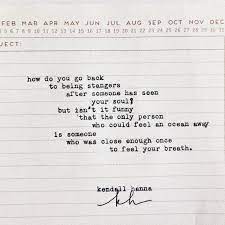 FEB MAR APR MAY JUN JUL AUG SEP OCT NOV DEC
JECT:
how do you go back
to being stangers
after someone has seen
your soul?
but isn't it funny
that the only person
who could feel an ocean away
is someone
who was close enough once
to feel your breath.
kendall hanna
kh